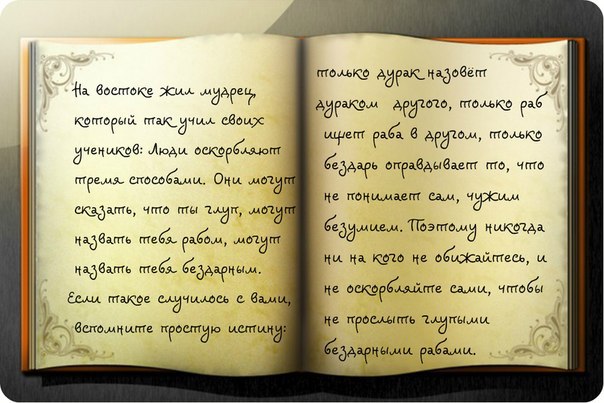 На востоке жил мудрец,
который так учил своих
учеников: Люди оскорбляют
тремя способами. Они могут
сказать, что ты глуп, могут
назвать тебя рабом, могут
назвать тебя бездарным.
Если такое случилось с вами,
вспомните простую истину:
только дурак назовёт
дураком другого, только раб
ищет раба в другом, только
бездарь оправдывает то, что
не понимает сам, чужим
безумием. Поэтому никогда
ни на кого не обижайтесь, и
не оскорбляйте сами, чтобы
не прослыть глупыми
бездарными рабами.